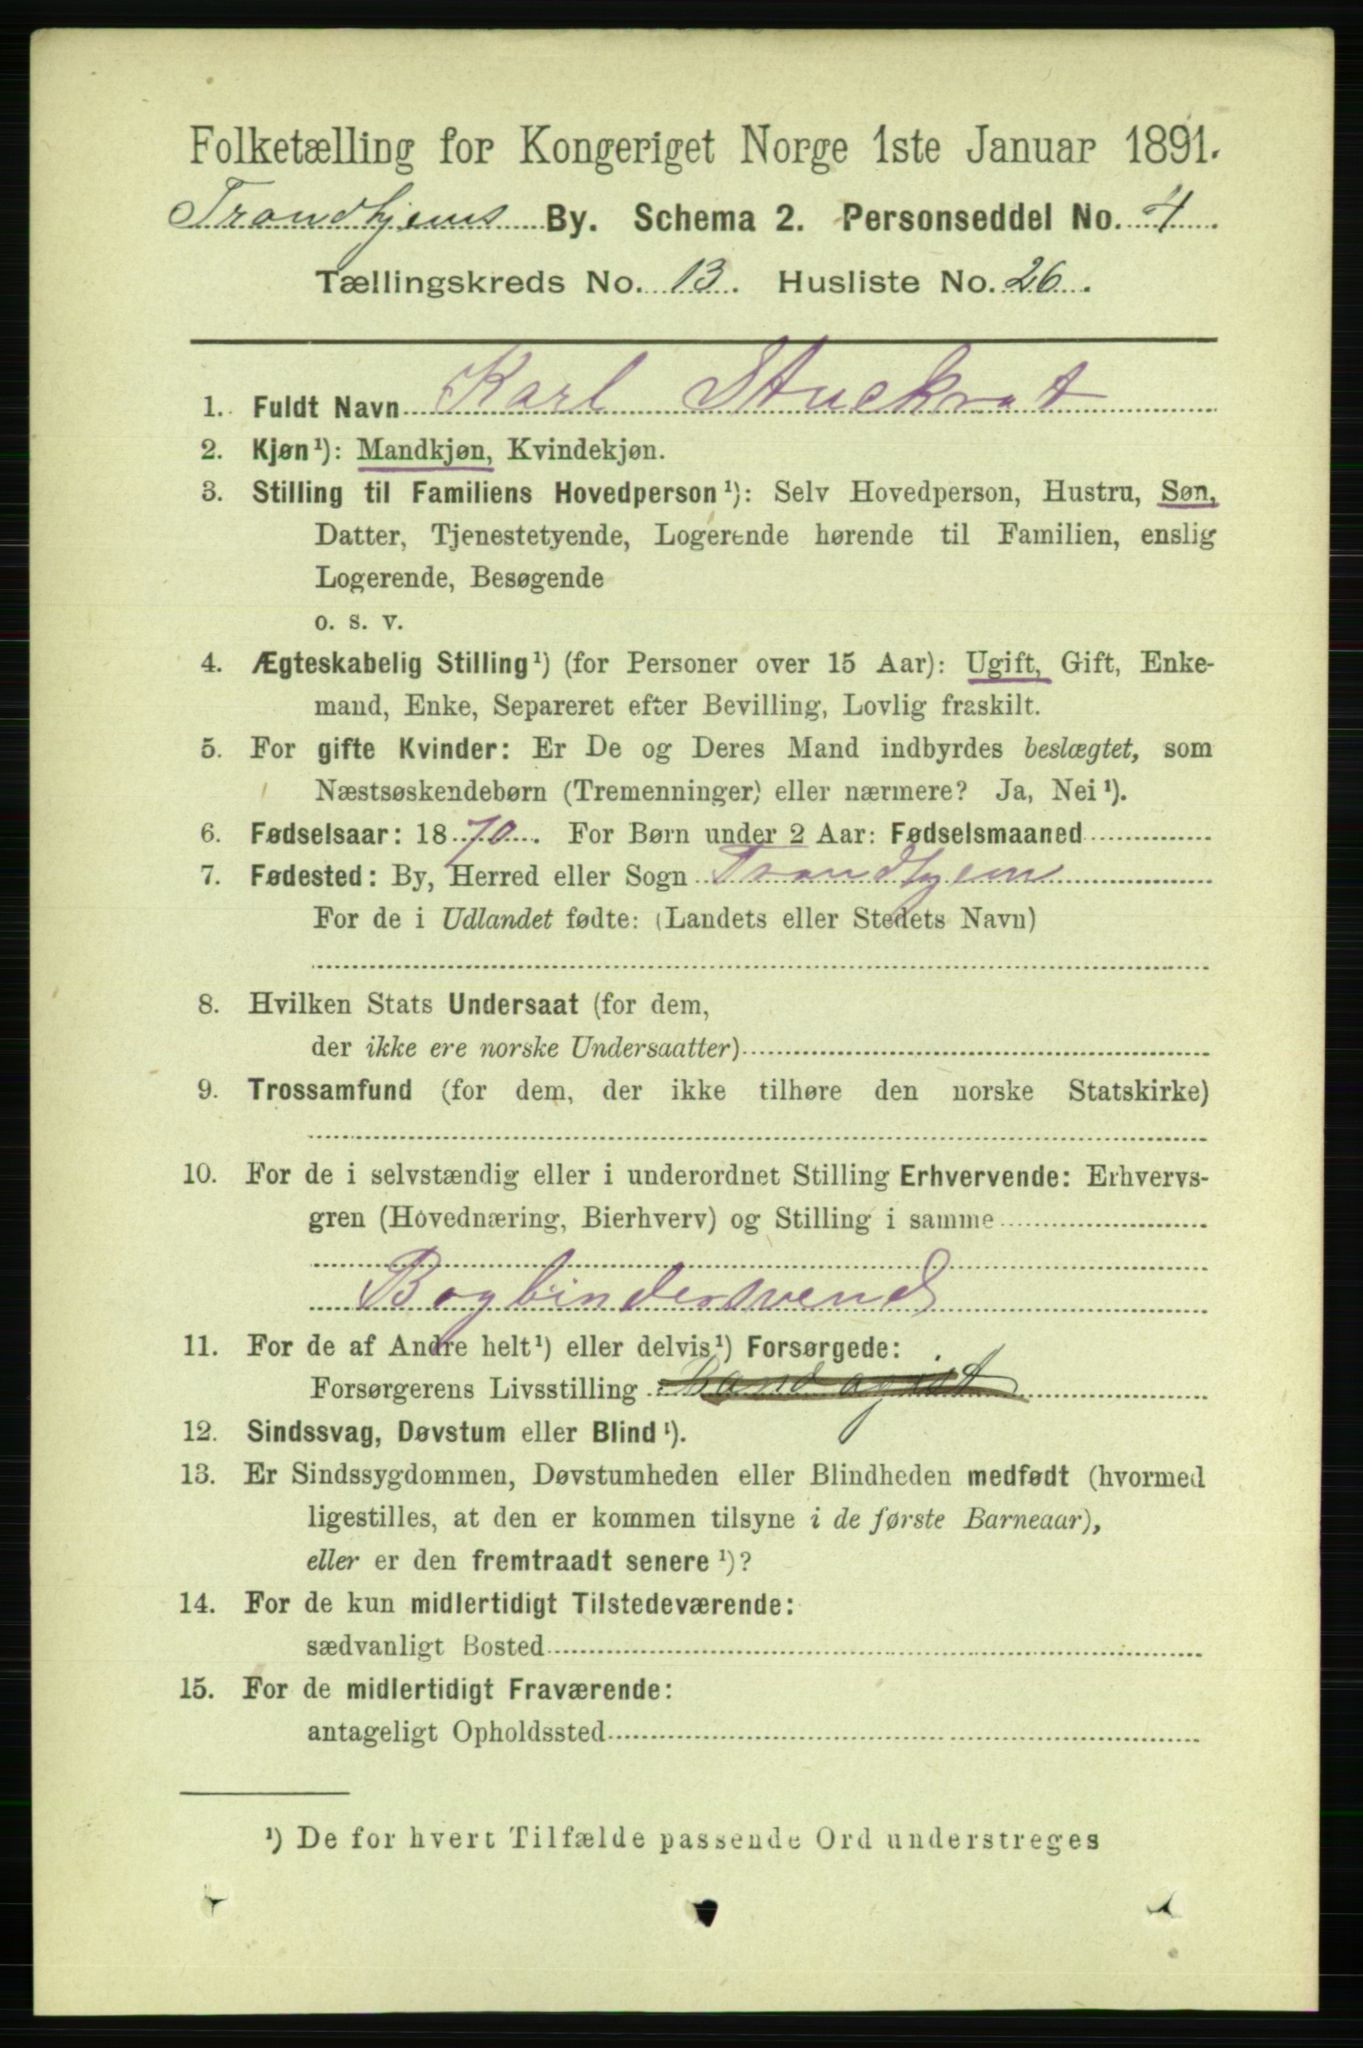 Folketælling for Kongeriget Norge 1ste Januar 1891.
Trondhjems By. Schema 2. Personseddel No. 4.
Tællingskreds No. 13. Husliste No. 26.
1. Fuldt Navn Karl Stuckrat
2. Kjøn¹): Mandkjøn, Kvindekjøn.
3. Stilling til Familiens Hovedperson¹): Selv Hovedperson, Hustru, Søn,
Datter, Tjenestetyende, Logerende hørende til Familien, enslig
Logerende, Besøgende
o. s. v.
4. Ægteskabelig Stilling¹) (for Personer over 15 Aar): Ugift, Gift, Enke-
mand, Enke, Separeret efter Bevilling, Lovlig fraskilt.
5. For gifte Kvinder: Er De og Deres Mand indbyrdes beslægtet, som
Næstsøskendebørn (Tremenninger) eller nærmere? Ja, Nei¹).
6. Fødselsaar: 1870. For Børn under 2 Aar: Fødselsmaaned
7. Fødested: By, Herred eller Sogn Trondhjem
For de i Udlandet fødte: (Landets eller Stedets Navn)
8. Hvilken Stats Undersaat (for dem,
der ikke ere norske Undersaatter)
9. Trossamfund (for dem, der ikke tilhøre den norske Statskirke)
10. For de i selvstændig eller i underordnet Stilling Erhvervende: Erhvervs-
gren (Hovednæring, Bierhverv) og Stilling i samme
Bogbindersvend
11. For de af Andre helt¹) eller delvis¹) Forsørgede:
Forsørgerens Livsstilling Bandagist
12. Sindssvag, Døvstum eller Blind¹).
13. Er Sindssygdommen, Døvstumheden eller Blindheden medfødt (hvormed
ligestilles, at den er kommen tilsyne i de første Barneaar),
eller er den fremtraadt senere¹)?
14. For de kun midlertidigt Tilstedeværende:
sædvanligt Bosted
15. For de midlertidigt Fraværende:
antageligt Opholdssted
¹) De for hvert Tilfælde passende Ord understreges